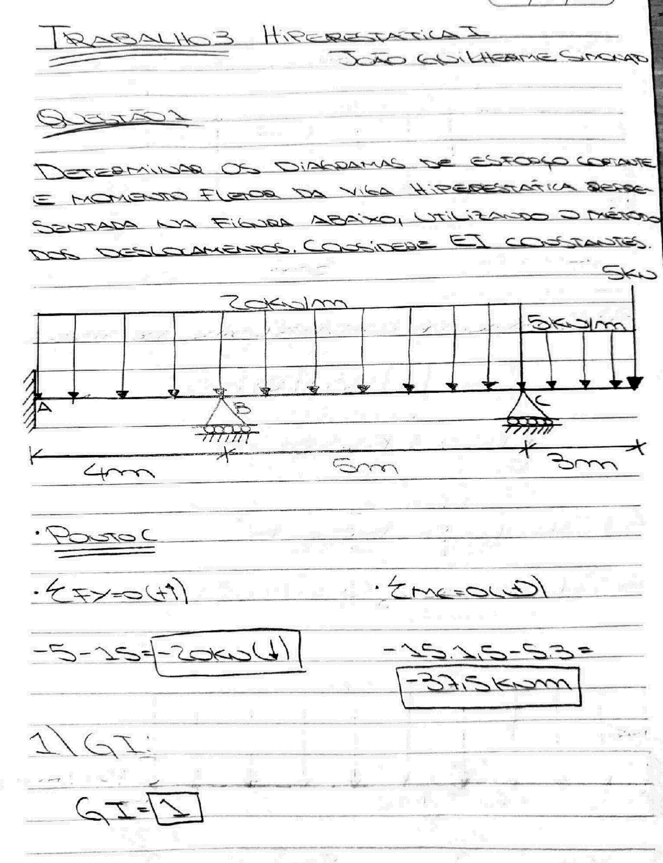 TRABALHO 3 HIPERESTATICA I
JOÃO GUILHERME SIMONATO
QUESTÃO 1
DETERMINAR OS DIAGRAMAS DE ESFORÇO CORTANTE
E MOMENTO FLETOR DA VIGA HIPERESTÁTICA REPRE-
SENTADA NA FIGURA ABAIXO, UTILIZANDO O MÉTODO
DOS DESLOCAMENTOS. CONSIDERE EI CONSTANTES.
5KN
20KN/m
5KN/m
A B C
4m 5m 3m
• PONTO C
• ΣFY=0(+↑) • ΣMC=0(+)
-5-15=-20KN(↓) -15.1,5-5.3=
-37,5KNm
1\ GI:
GI=1